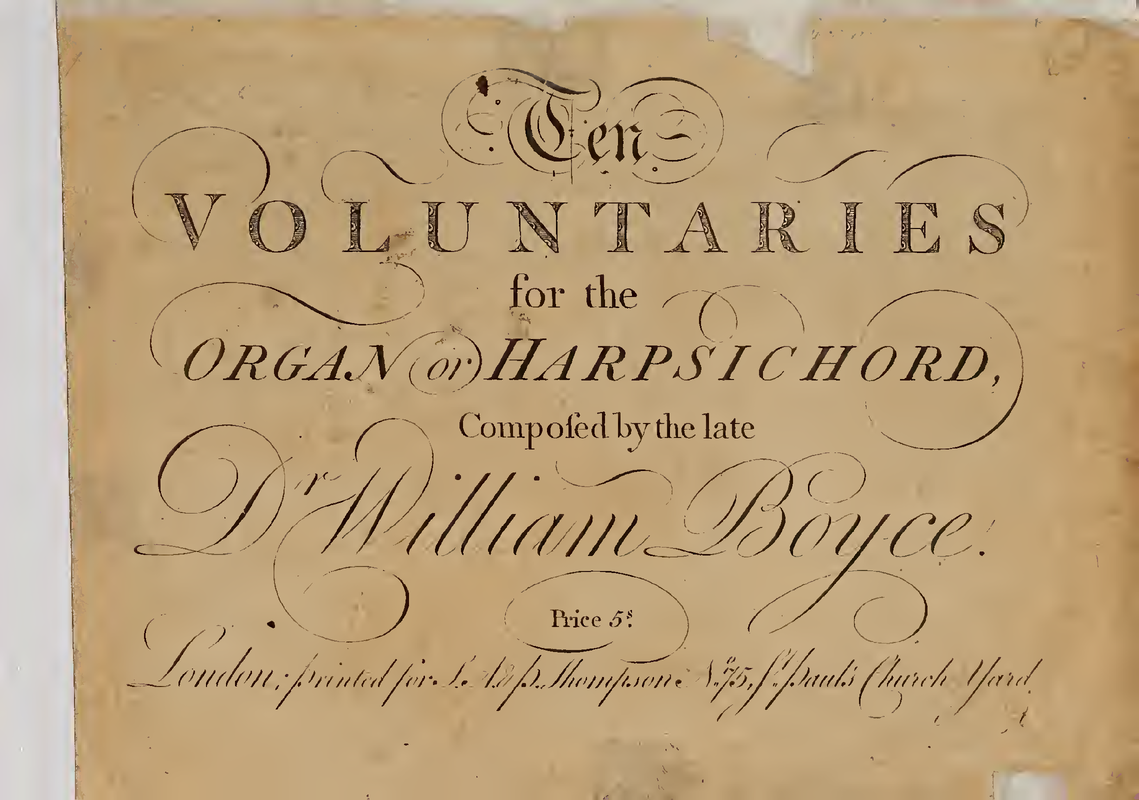 Ten
VOLUNTARIES
for the
ORGAN (or) HARPSICHORD,
Compoſed by the late
Dr William Boyce.
Price 5s.
London; printed for S. A. & P. Thompson No. 75, St. Paul's Church Yard